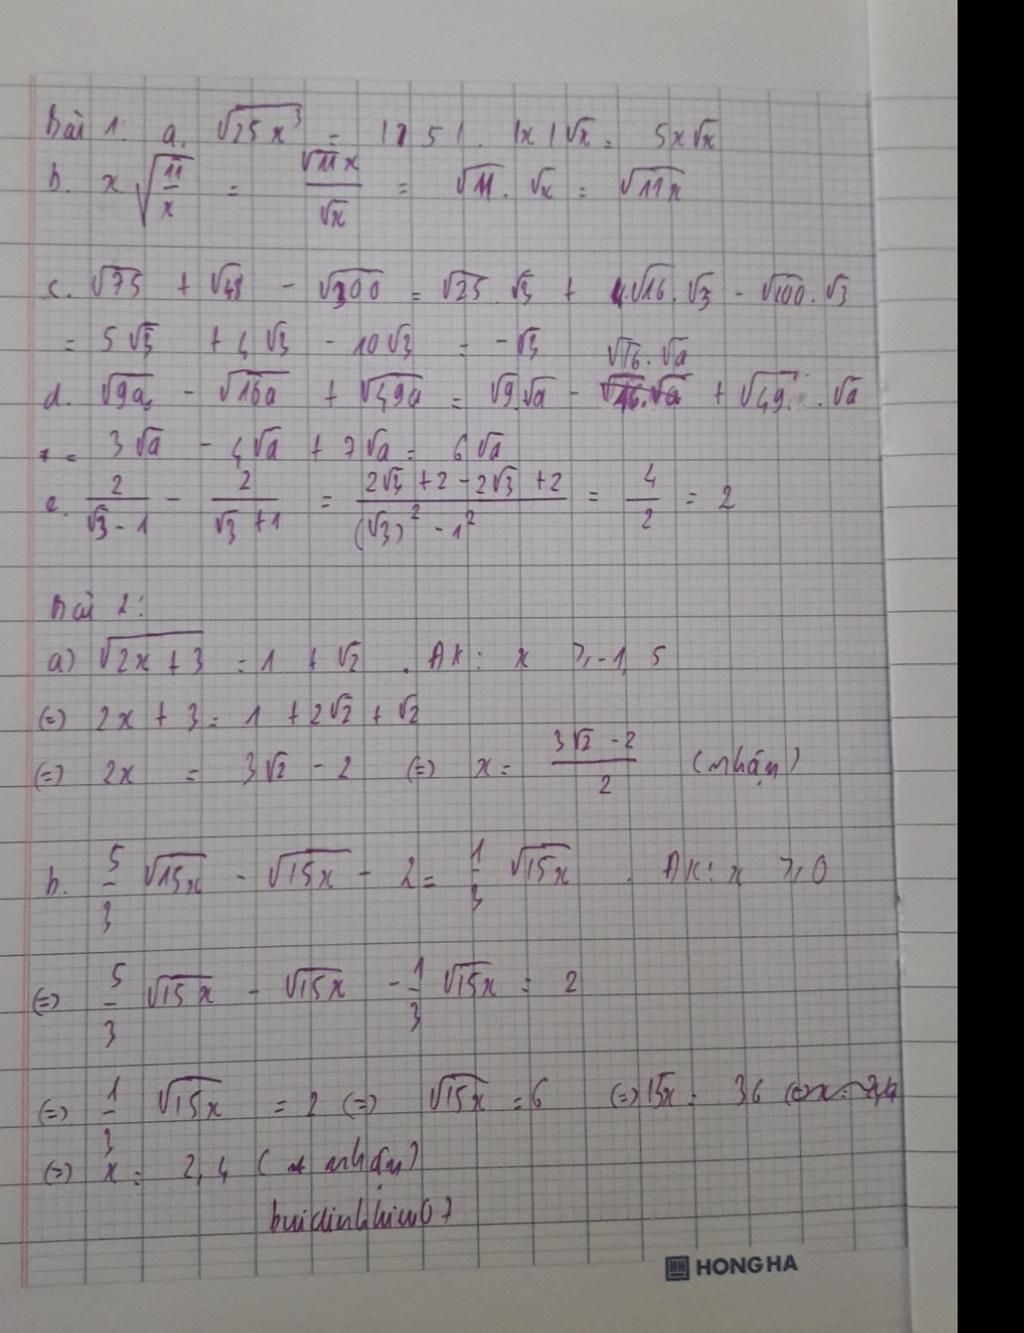 Bài 1: a. √25x³ = |25|. |x|√x = 5x√x
b. x√(11/x) = √11 x/√x = √11 . √x = √11x
c. √75 + √48 - √300 = √25 √3 + √16 . √3 - √100 . √3
= 5√3 + 4√3 - 10√3 = -√3
d. √9a - √16a + √49a = √9.√a - √16.√a + √49 . √a
= 3√a - 4√a + 7√a = 6√a
e. 2/(√3 - 1) - 2/(√3 + 1) = (2√3 + 2 - 2√3 + 2)/((√3)² - 1²) = 4/2 = 2
Bài 2:
a) √2x + 3 = 1 + √2 . ĐK: x ≥ -1,5
(=) 2x + 3 = 1 + 2√2 + √2
(=) 2x = 3√2 - 2 (=) x = (3√2 - 2)/2 (nhận)
b. 5/3 √15x - √15x - 2 = 1/3 √15x . ĐK: x ≥ 0
(=) 5/3 √15x - √15x - 1/3 √15x = 2
(=) 1/3 √15x = 2 (=) √15x = 6 (=) 15x = 36
(=) x = 2,4 (nhận)
HONG HA